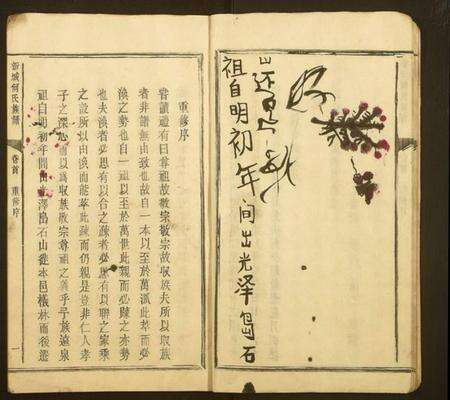 祖自明初年間出光澤島石
重修序
嘗讀禮有曰尊祖故敬宗敬宗故收族夫所以收族
者非譜無由致也故自一本以至於萬派此萃而必
渙之勢也自一祖以至於萬世此親而必疎之亦勢
也夫渙者必思有以合之疎者必思有以聯之家乘
之設所以由渙而能萃此疎而仍親是豈非仁人孝
子之深思而以爲收族敬宗尊祖之義乎予族遠泉
祖自明初年間出光澤島石山徙本邑橫林而後遷
新城何氏族譜 卷首 重修序 一